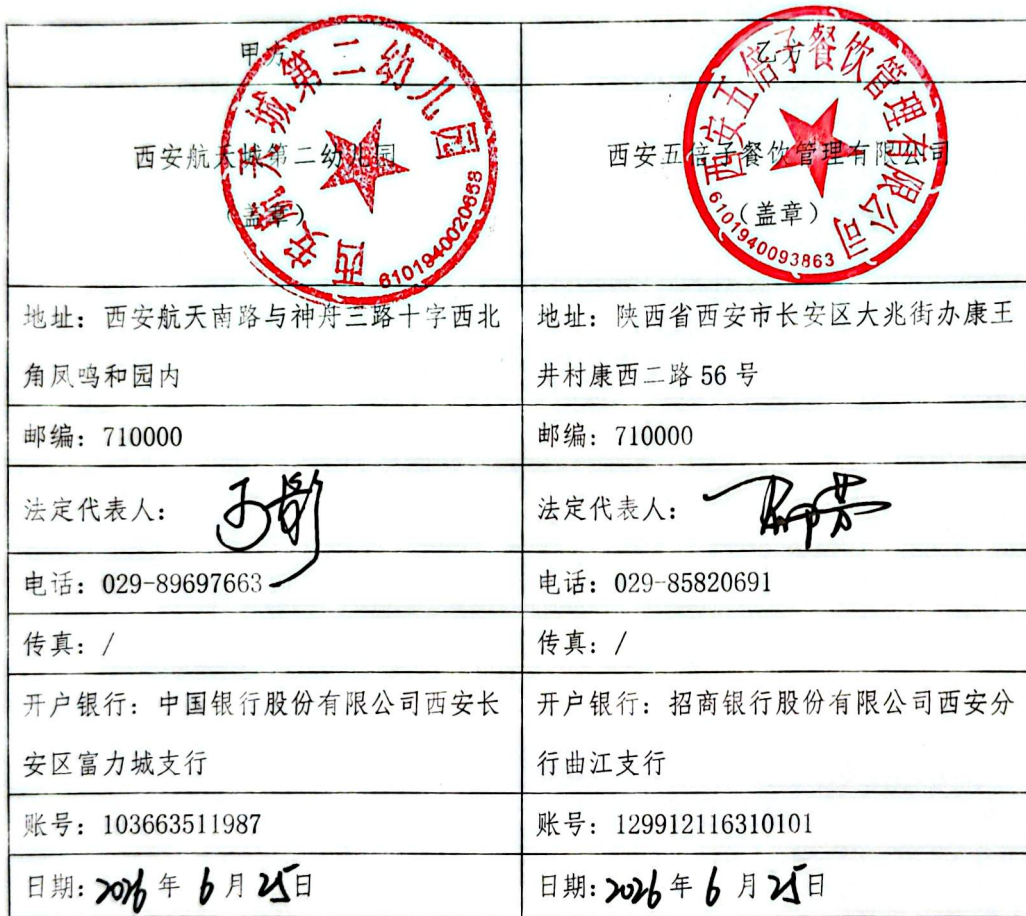 甲方
乙方
西安航天城第二幼儿园
(盖章)
西安五倍子餐饮管理有限公司
(盖章)
西安航天城第二幼儿园
6101940020658
西安五倍子餐饮管理有限公司
6101940093863
地址: 西安航天南路与神舟三路十字西北
角凤鸣和园内
地址: 陕西省西安市长安区大兆街办康王
井村康西二路 56 号
邮编: 710000
邮编: 710000
法定代表人:
法定代表人:
电话: 029-89697663
电话: 029-85820691
传真: /
传真: /
开户银行: 中国银行股份有限公司西安长
安区富力城支行
开户银行: 招商银行股份有限公司西安分
行曲江支行
账号: 103663511987
账号: 129912116310101
日期: 2026 年 6 月 25 日
日期: 2026 年 6 月 25 日